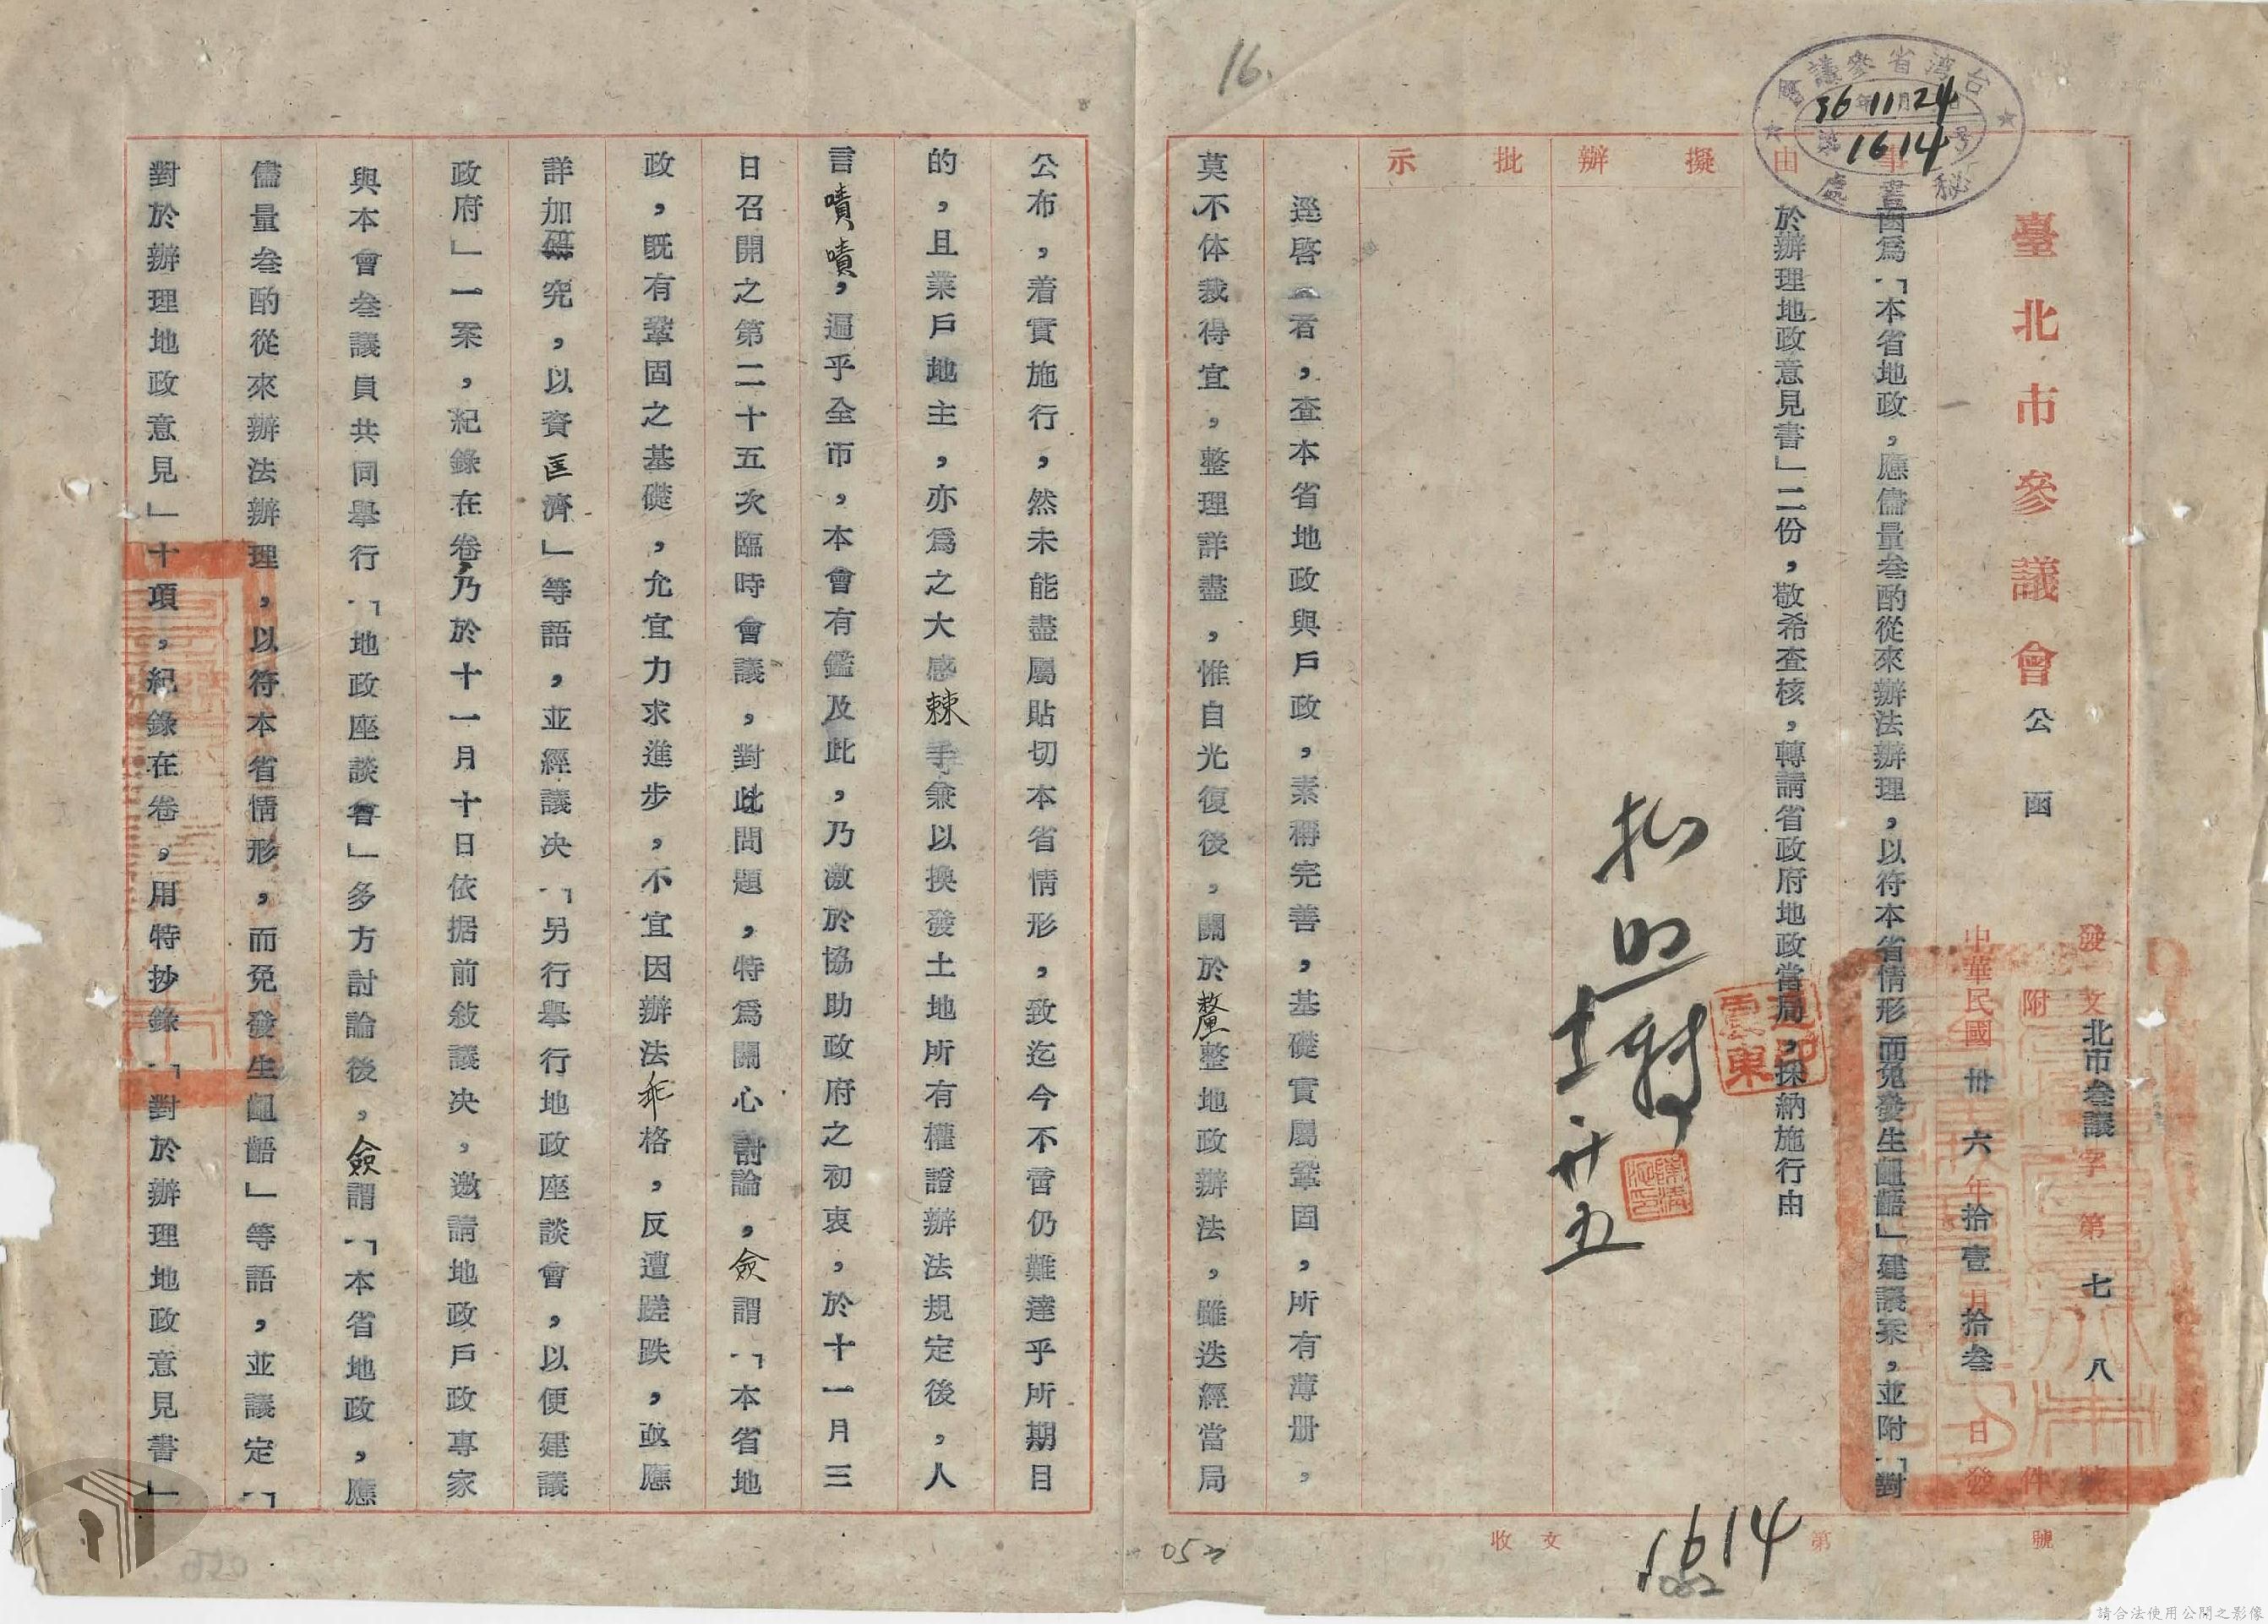 16.
台灣省參議會
36 年 11 月 24
第 1614 号
秘書處
臺北市參議會公函
發文 北市叁議字第七八號
附件
中華民國卅六年拾壹月拾叁日發
事由
擬辦
批示
函爲「本省地政，應儘量叁酌從來辦法辦理，以符本省情形而免發生齟齬」建議案，並附「對
於辦理地政意見書」二份，敬希查核，轉請省政府地政當局，採納施行由
拟照轉
十一 廿五
連震東印
逕啓者，查本省地政與戶政，素稱完善，基礎實屬鞏固，所有薄册，
莫不体裁得宜，整理詳盡，惟自光復後，關於釐整地政辦法，雖迭經當局
公布，着實施行，然未能盡屬貼切本省情形，致迄今不啻仍難達乎所期目
的，且業戶地主，亦爲之大感棘手兼以換發土地所有權證辦法規定後，人
言嘖嘖，遍乎全市，本會有鑑及此，乃激於協助政府之初衷，於十一月三
日召開之第二十五次臨時會議，對此問題，特爲關心討論，僉謂「本省地
政，既有鞏固之基礎，允宜力求進步，不宜因辦法乖格，反遭蹉跌，亟應
詳加研究，以資匡濟」等語，並經議决「另行舉行地政座談會，以便建議
政府」一案，紀錄在卷，乃於十一月十日依据前敍議决，邀請地政戶政專家
與本會叁議員共同舉行「地政座談會」多方討論後，僉謂「本省地政，應
儘量叁酌從來辦法辦理，以符本省情形，而免發生齟齬」等語，並議定「
對於辦理地政意見」十項，紀錄在卷，用特抄錄「對於辦理地政意見書」
收文 第 1614 號
052
請合法使用公開之影像